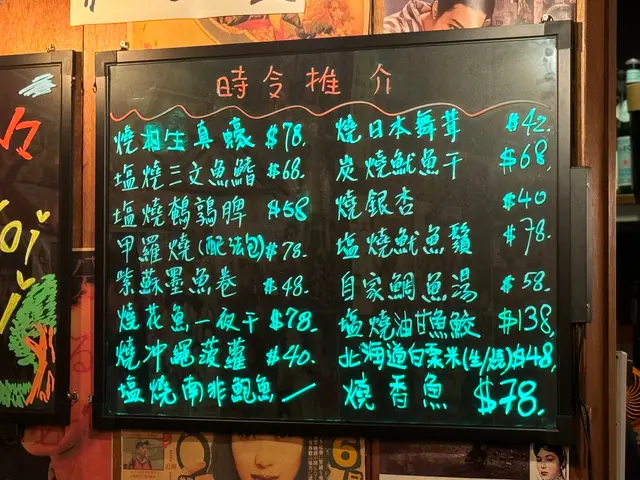 時令推介
燒相生真蠔 $78.
塩燒三文魚鰭 $68.
塩燒鵪鶉脾 $58
甲羅燒(配法包) $78.
紫蘇墨魚卷 $48.
燒花魚一夜干 $78.
燒沖繩菠蘿 $40.
塩燒南非鮑魚 /
燒日本舞茸 $42.
炭燒魷魚干 $68
燒銀杏 $40
塩燒魷魚鬚 $78.
自家鯛魚湯 $58.
塩燒油甘魚鮫 $138
北海道白粟米(生/燒) $48.
燒香魚 $78.